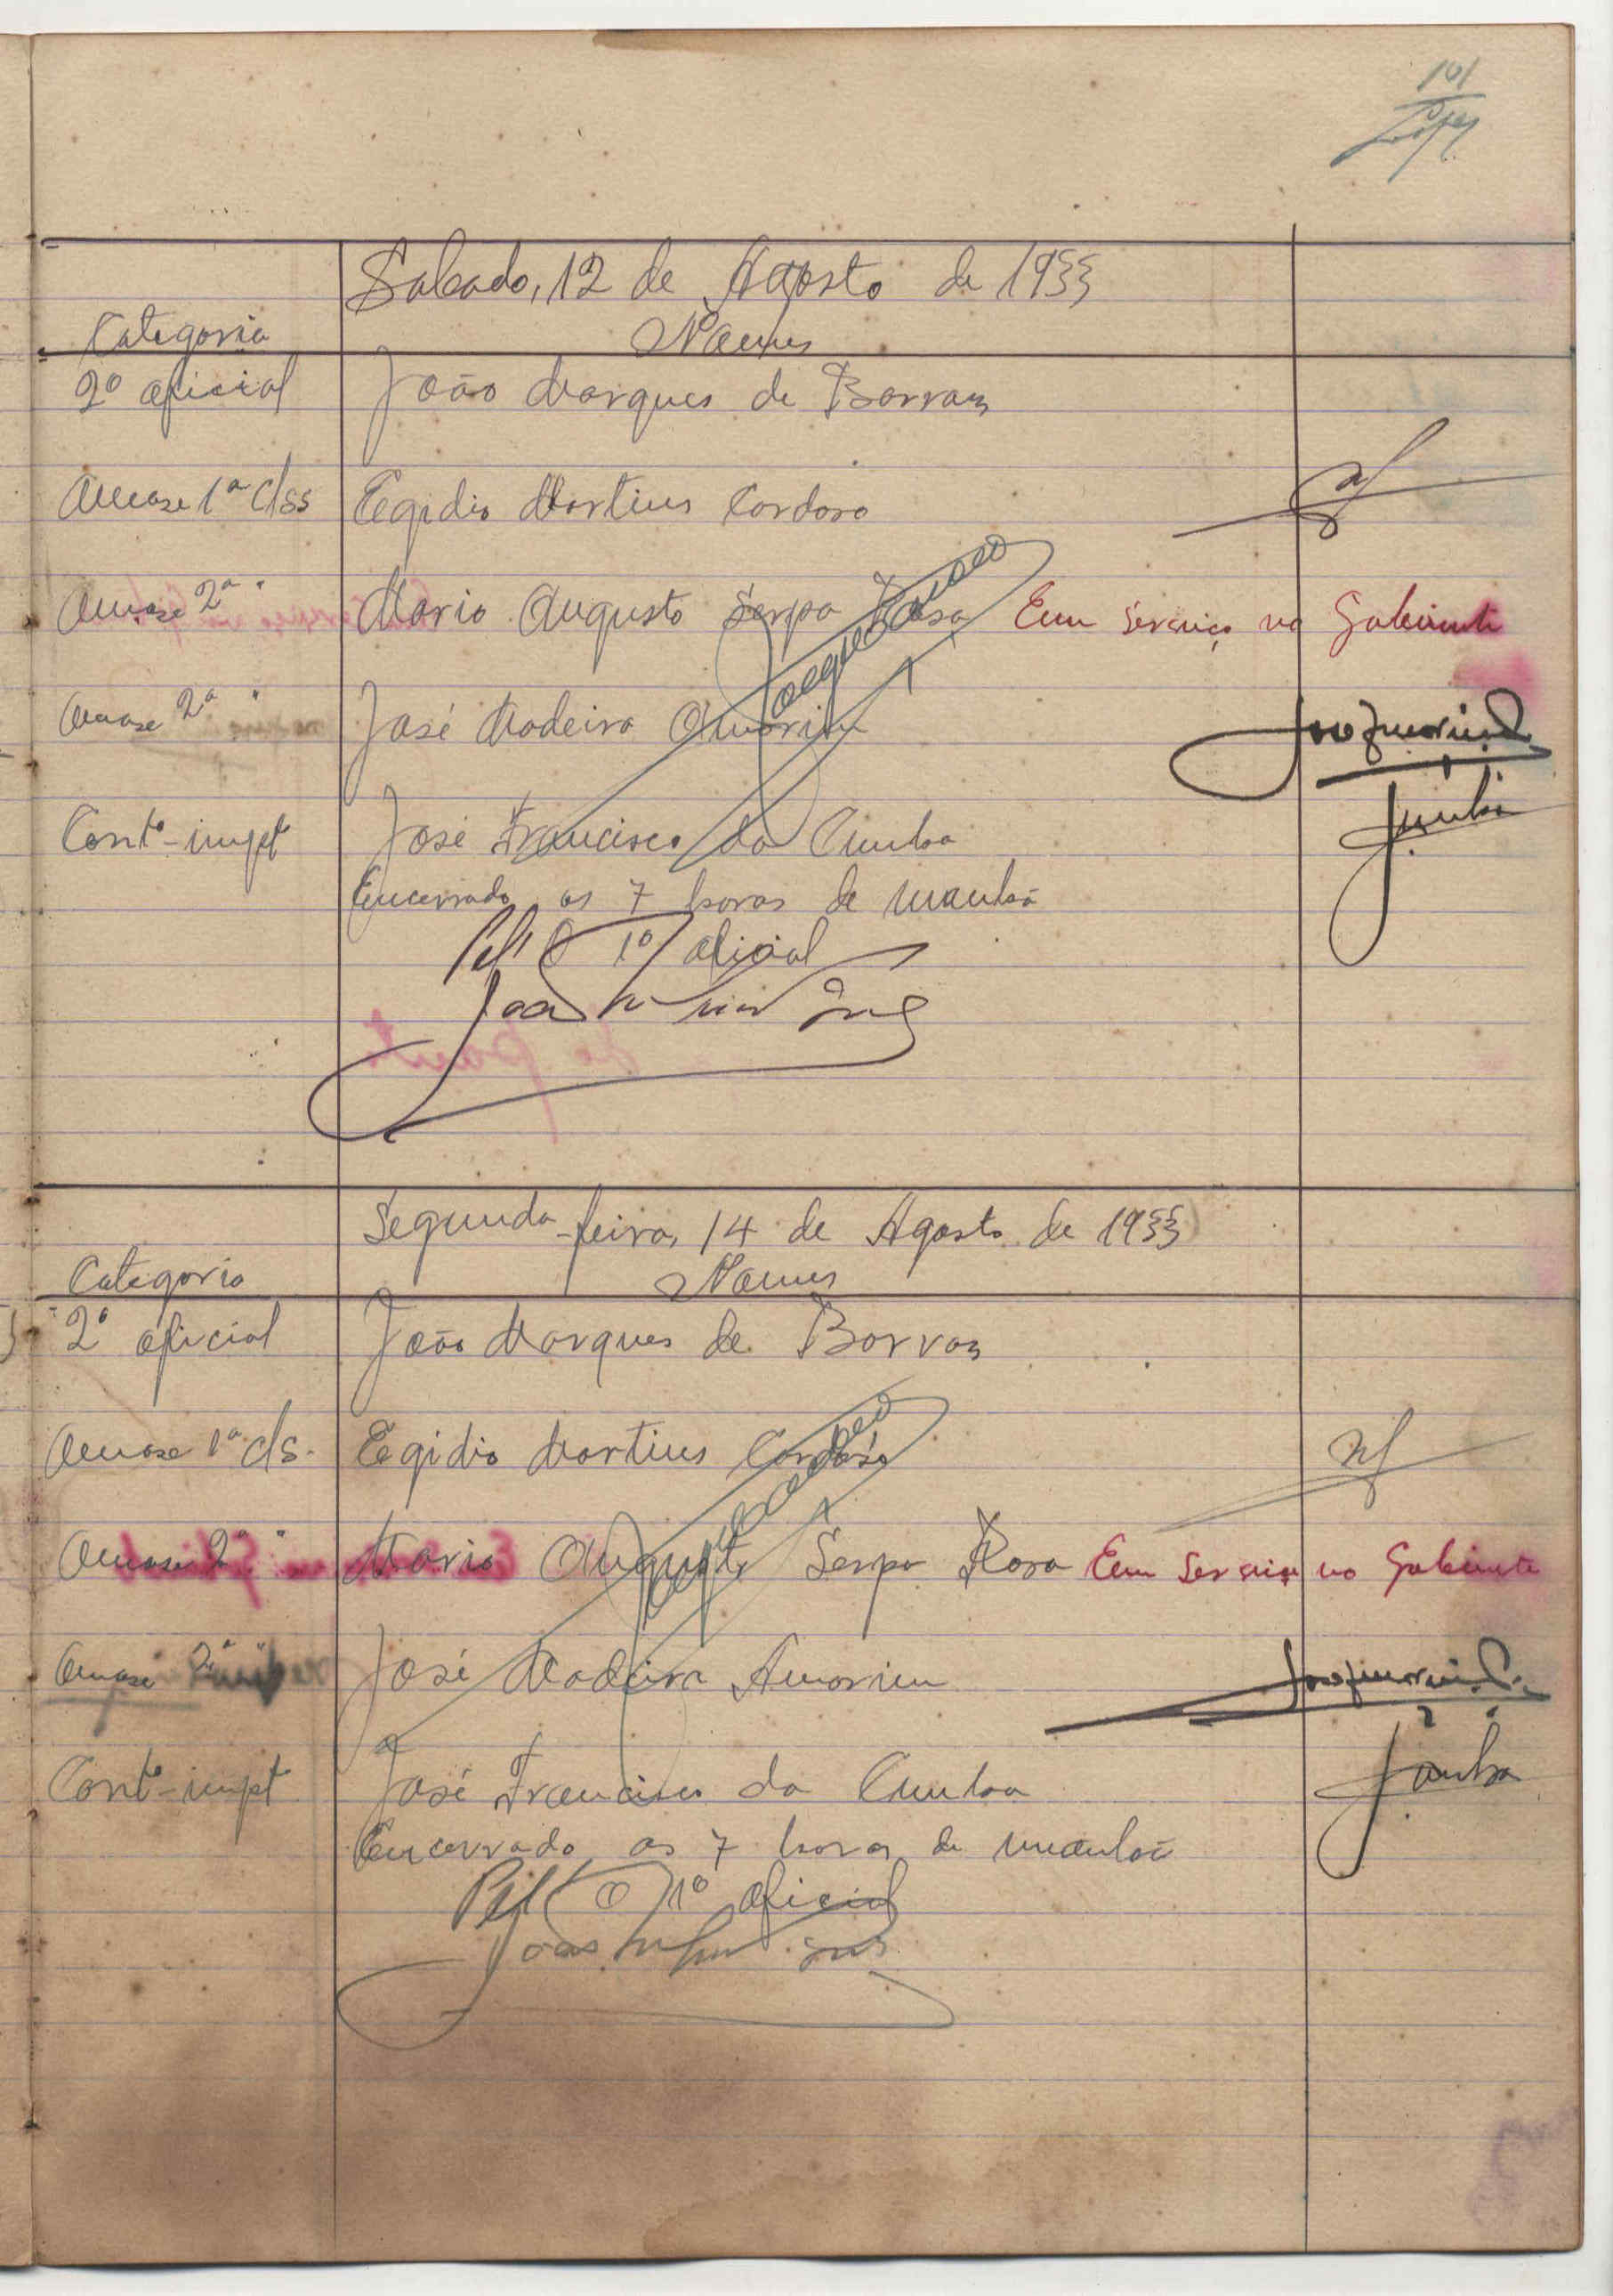 101
Lopes
Sabado, 12 de Agosto de 1933
Categoria Nomes
2º oficial João Marques de Barros
Amase 1ª clss Egidio Martins Cardoso
Amase 2ª " Mario Augusto Serpa Rosa Em serviço no Gabinete
Amase 2ª " José Madeira Amorim
Contº-impt José Francisco da Cunha Cunha
Encerrado as 7 horas de manhã
Pelº O 1º oficial
Segunda-feira, 14 de Agosto de 1933
Categoria Nomes
2º oficial João Marques de Barros
Amase 1ª cls. Egidio Martins Cardoso
Amase 2ª " Mario Augusto Serpa Rosa Em serviço no Gabinete
Amase 2ª " José Madeira Amorim
Contº-impt José Francisco da Cunha Cunha
Encerrado as 7 horas de manhã
Pelº O 1º oficial